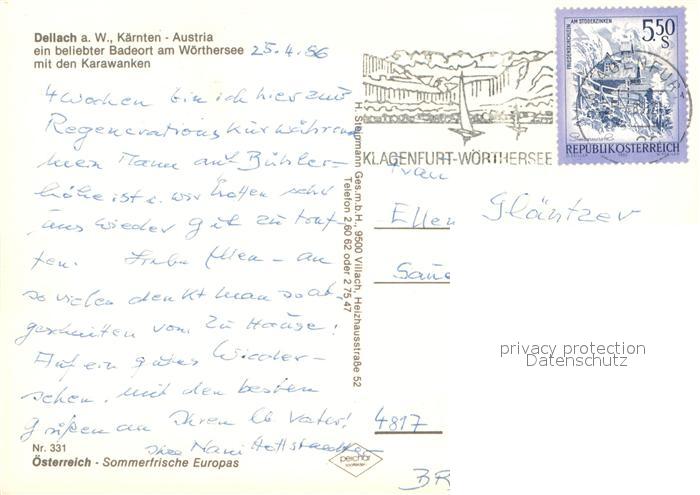 Dellach a. W., Kärnten - Austria
ein beliebter Badeort am Wörthersee
mit den Karawanken
25.4.86
4 Wochen bin ich hier zur
Regenerationskur während
mein Mann auf Bühler-
höhe ist u. wir hoffen sehr
uns wieder gut zu
ten. Liebe Ellen - an
so vieles denkt man so ab
geschnitten vom zu Hause!
Auf ein gutes Wieder-
sehen. mit den besten
Grüßen an Ihren lb Vater!
Ihre Nani
Nr. 331
Österreich - Sommerfrische Europas
H. Stegmann Ges.m.b.H., 9500 Villach, Heizhausstraße 52
Telefon 2 60 62 oder 2 75 47
KLAGENFURT-WÖRTHERSEE
FRIEDENSKIRCHLEIN
AM STODERZINKEN
5.50
S
REPUBLIK ÖSTERREICH
Frau
Ellen Gläntzer
4817
privacy protection
Datenschutz